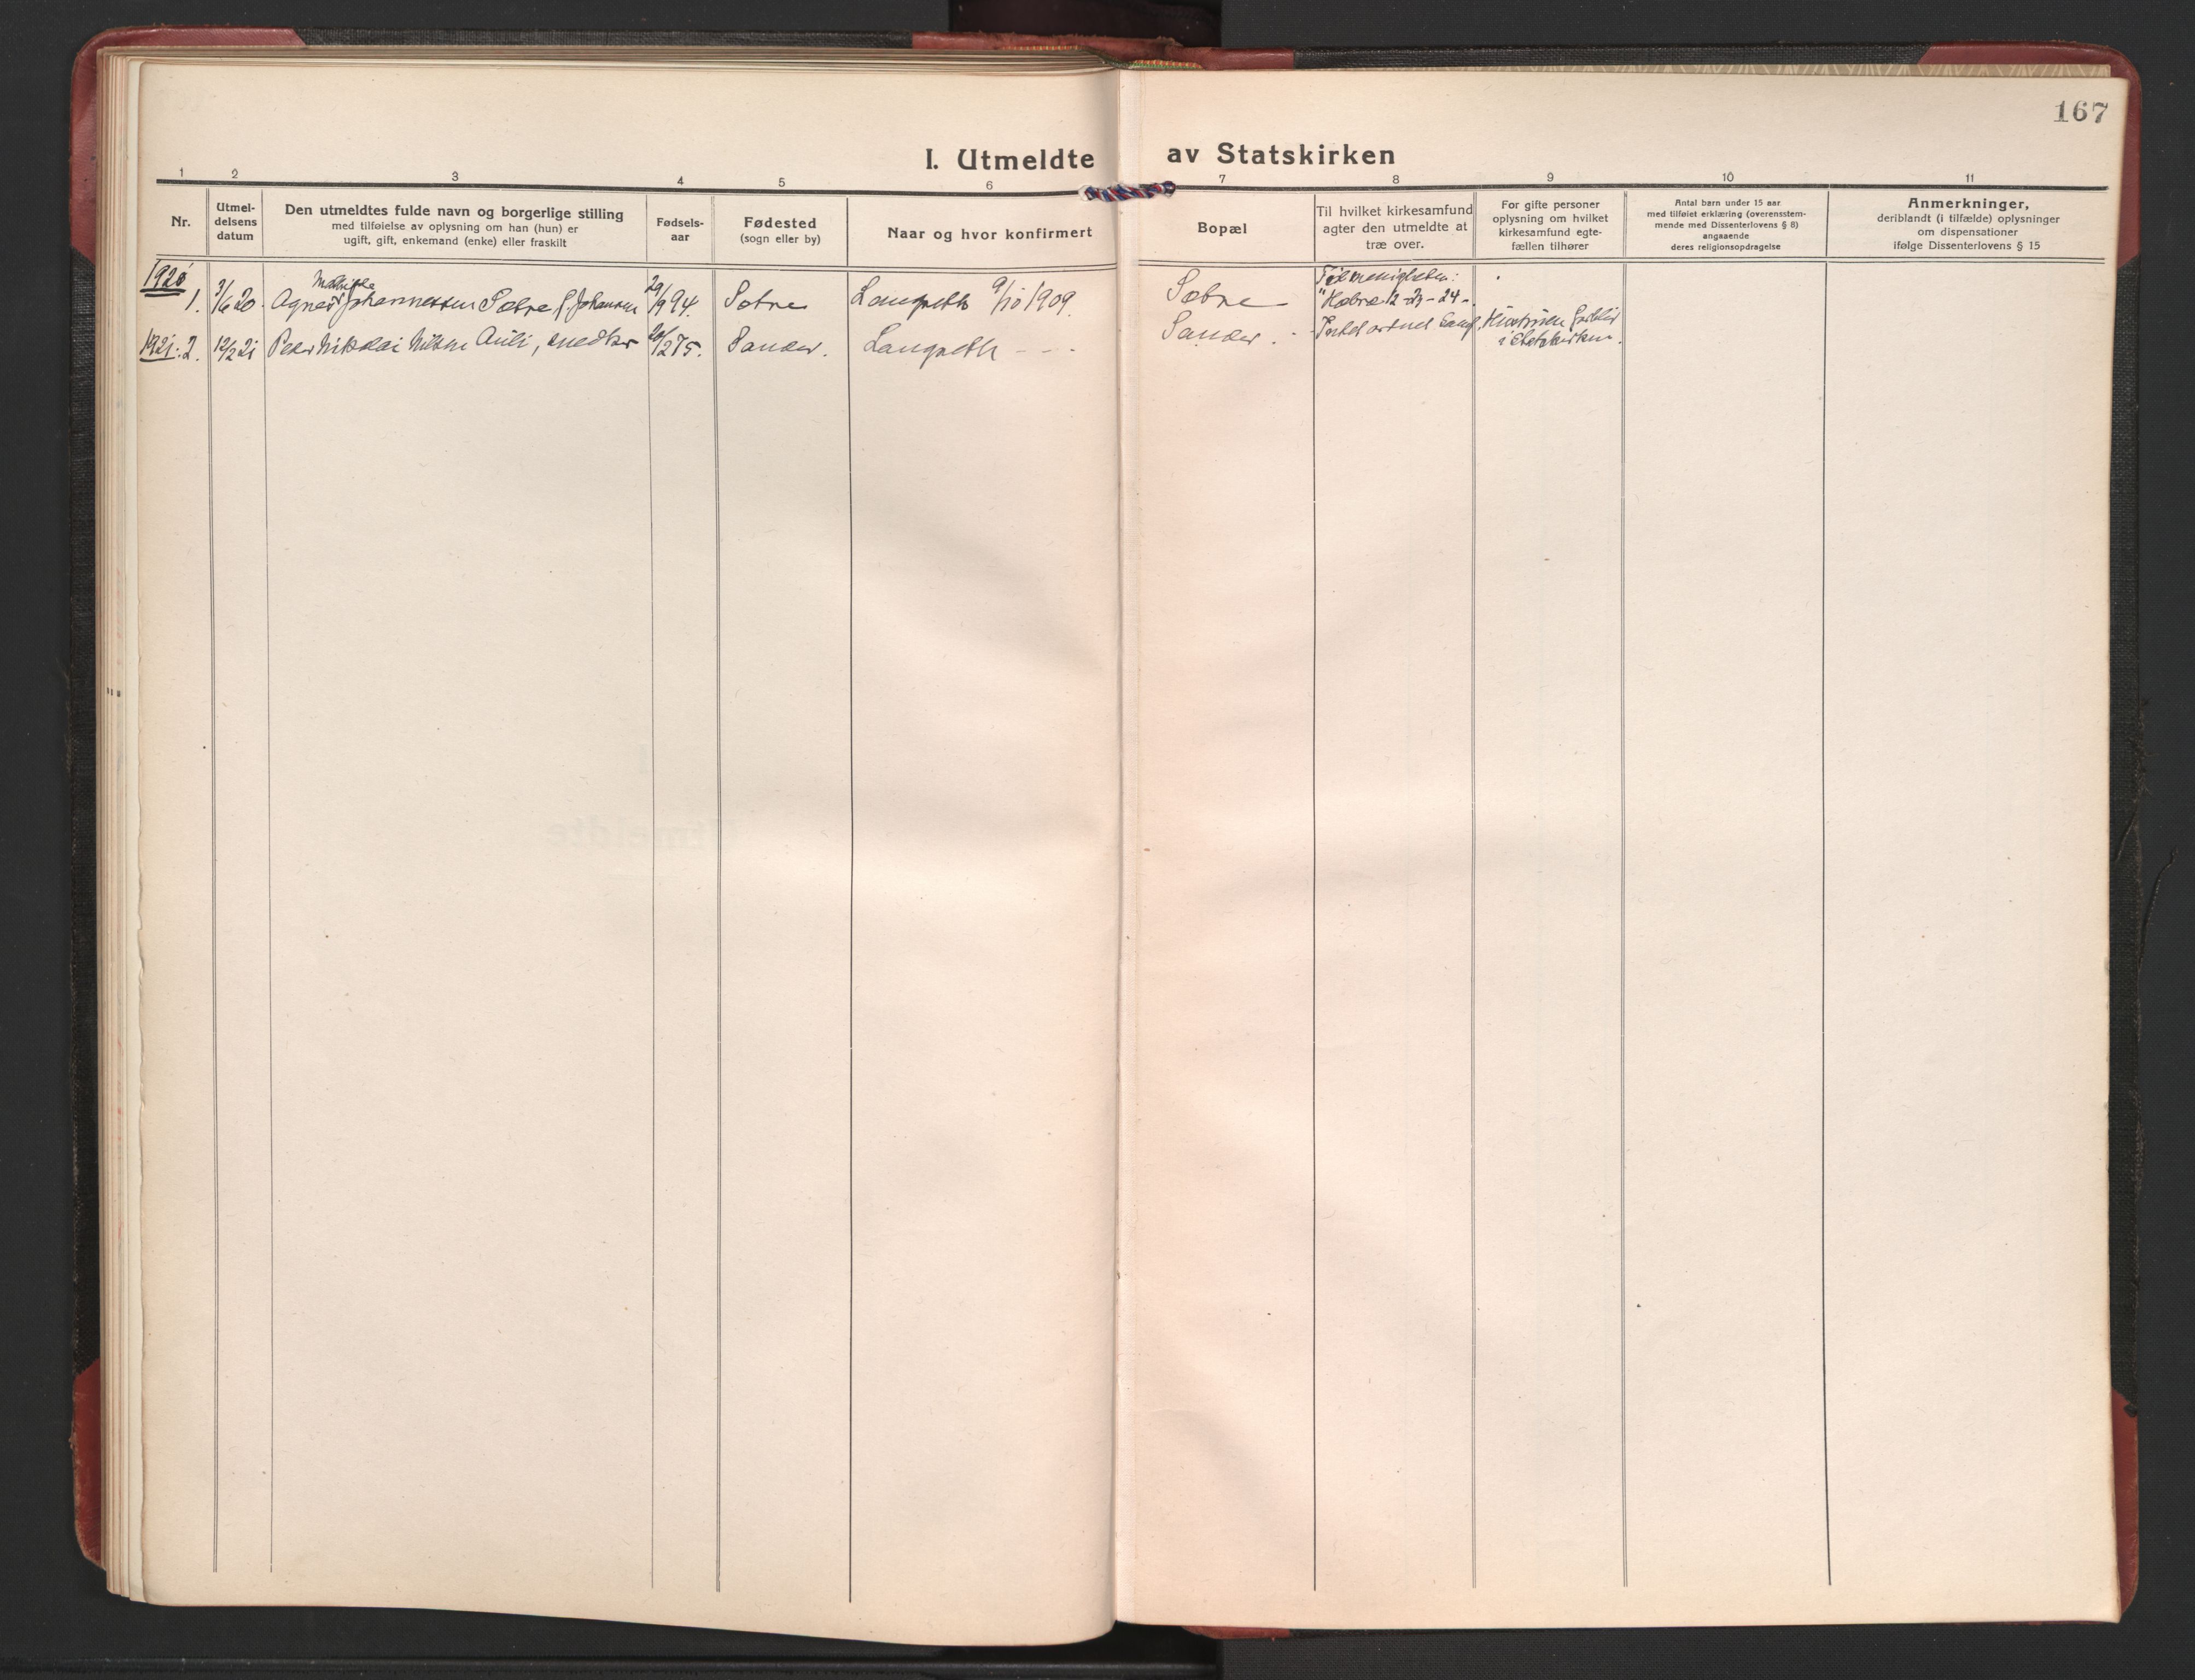 167
I. Utmeldte av Statskirken
1 2 3 4 5 6 7 8 9 10 11
Nr.
Utmel-
delsens
datum
Den utmeldtes fulde navn og borgerlige stilling
med tilføielse av oplysning om han (hun) er
ugift, gift, enkemand (enke) eller fraskilt
Fødsels-
aar
Fødested
(sogn eller by)
Naar og hvor konfirmert
Bopæl
Til hvilket kirkesamfund
agter den utmeldte at
træ over.
For gifte personer
oplysning om hvilket
kirkesamfund egte-
fællen tilhører
Antal barn under 15 aar
med tilføiet erklæring (overensstem-
mende med Dissenterlovens § 8)
angaaende
deres religionsopdragelse
Anmerkninger,
deriblandt (i tilfælde) oplysninger
om dispensationer
ifølge Dissenterlovens § 15
1920
Mathilde
1. 3/6 20. Agnes Johannessen Sætre f. Johansen 29/9 94. Sætre Langseth 9/10 1909. Sætre
"Hebr. 12-23-24-
1921: 2. 12/2 21 Peder Nikolai Nilsen Auli, snedker 20/2 75. Sander. Langseth - - - Sander. Hustruen forblir
i Statskirken.